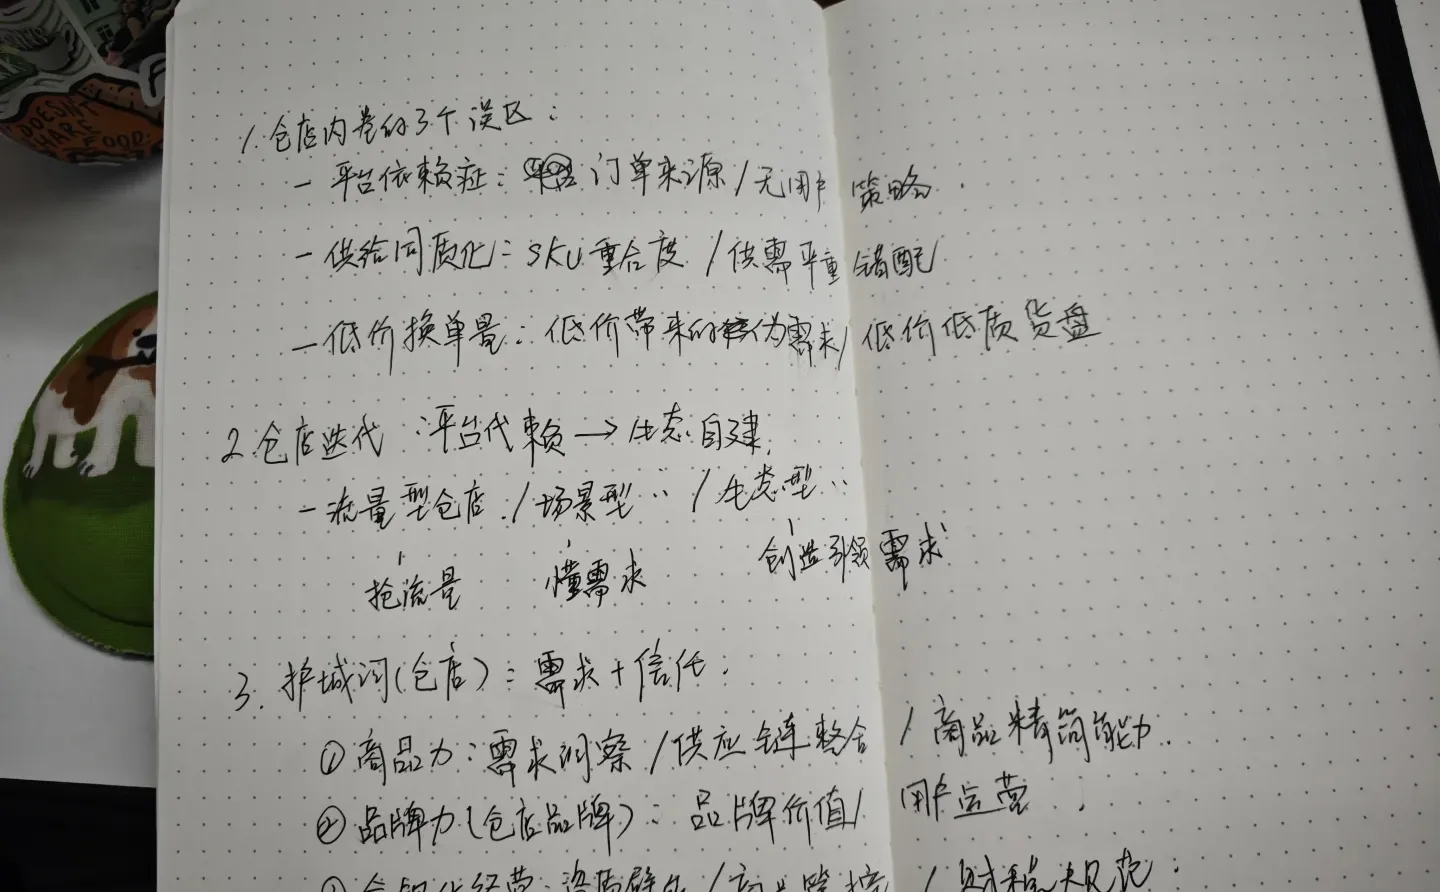 DOESN'T
SHARE
FOOD
1. 仓店内卷的3个误区:
- 平台依赖症: 订单来源 / 无用户策略.
- 供给同质化: SKU重合度 / 供需严重错配
- 低价换单量: 低价带来的伪需求 / 低价低质货盘
2. 仓店迭代: 平台代赖 → 生态自建.
- 流量型仓店. / 场景型 〃 / 生态型 〃
抢流量 懂需求 创造引领需求
3. 护城河(仓店): 需求+信任.
① 商品力: 需求洞察 / 供应链整合 / 商品精简能力.
② 品牌力(仓店品牌): 品牌价值 / 用户运营.